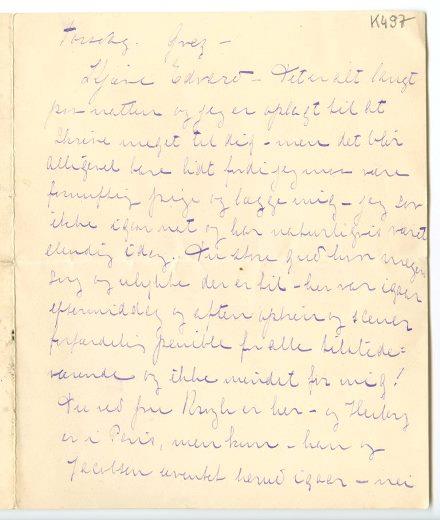 K497
Torsdag. Grez –
Kjære Edvard – Det er alt langt
på natten og jeg er oplagt til at
skrive meget til dig – men det blir
alligevel bare lidt fordi jeg maa være
fornuftig pige og lægge mig – jeg sov
ikke igår nat og har naturligvis været
elendig idag. Du store gud hvor megen
sorg og ulykke der er til – her var igaar
eftermiddag og aften optrin og scener
forfærdelig penible for alle tilstede=
værende og ikke mindst for mig!
Du ved fru Krogh er her – og Heiberg
er i Paris, men kun – han og
Jacobsen uventet herud igaar – nei